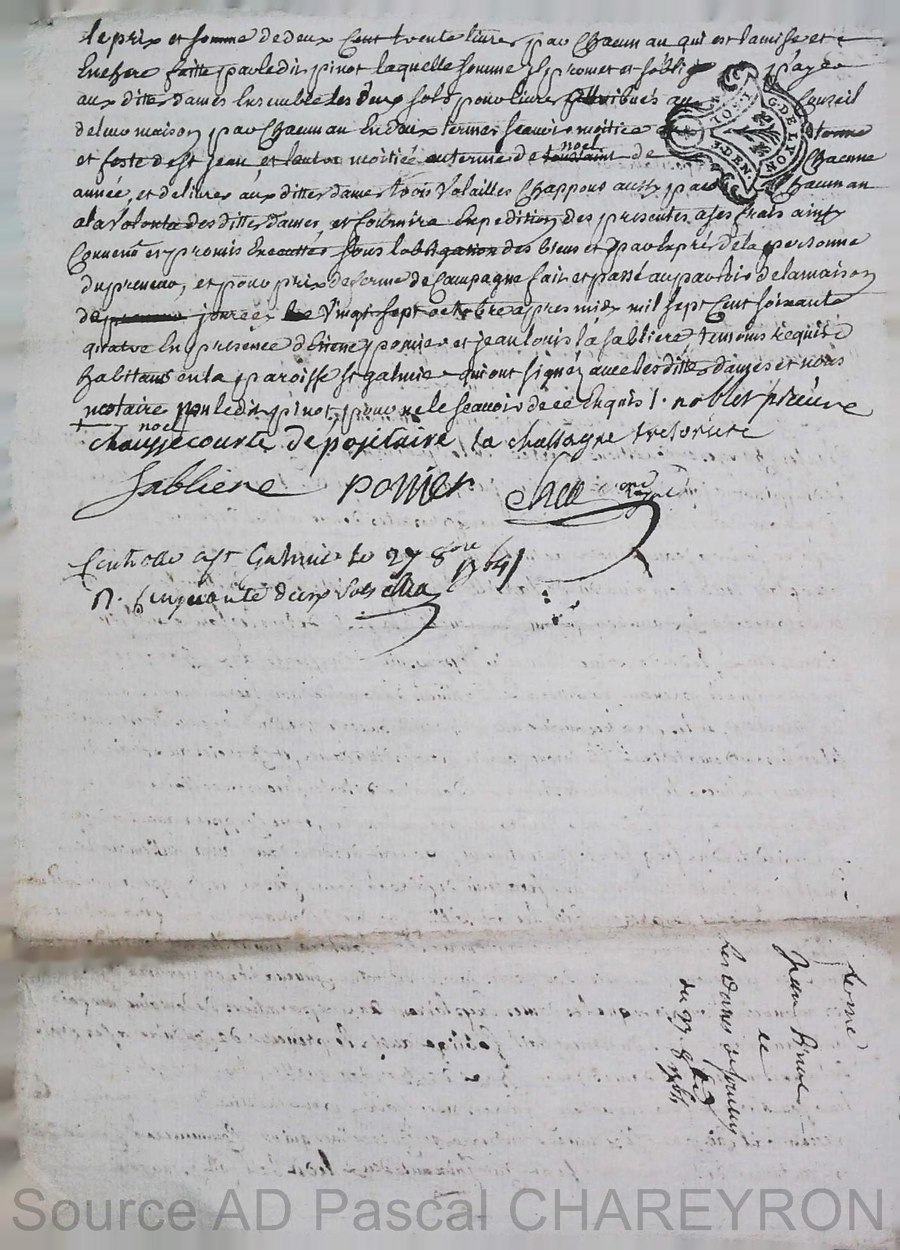 le prix et somme de deux Cent trente livres par Chacun an qui est la mise et
Enchere faitte par ledit pinot laquelle somme Il promet et s'oblige payer
aux dittes dames Ensemble les deux sols pour livre attribués au Conseil
de leur maison par Chacun an En deux termes scavoir moitié a terme
et feste de st jean et l'autre moitié au terme de toussaint noel de Chacune
année, et delivrer aux dittes dames trois Volailles Chappons aussy par Chacun an
a la volonté des dittes dames, et fournira Expedition des presentes a ses frais ainsy
Convenu et promis Executter sous l'obligation des biens et par Exprés de la personne
du preneur, et pour prix de ferme de Campagne fait et passé au parloir de la maison
de jourcey le Vingt sept octobre apres midy mil sept Cent soixante
quatre En presence d'Etiene ponier et jean louis la sabliere temoins requis
habitans en la paroisse st galmier qui ont signéz avec les dittes dames et nous
notaire non ledit pinot, pour ne le scavoir de ce Enquis /. noblet prieure
noel
chaussecourte depositaire la chassagne tresoriere
Sabliere ponier
Controllé a st Galmier le 27 8bre 1764
R. Cinquante deux sols
ferme
Jean Pinot
et
Les Dames de Jourcey
du 27 8bre 1764
G. DE LYON
Source AD Pascal CHAREYRON